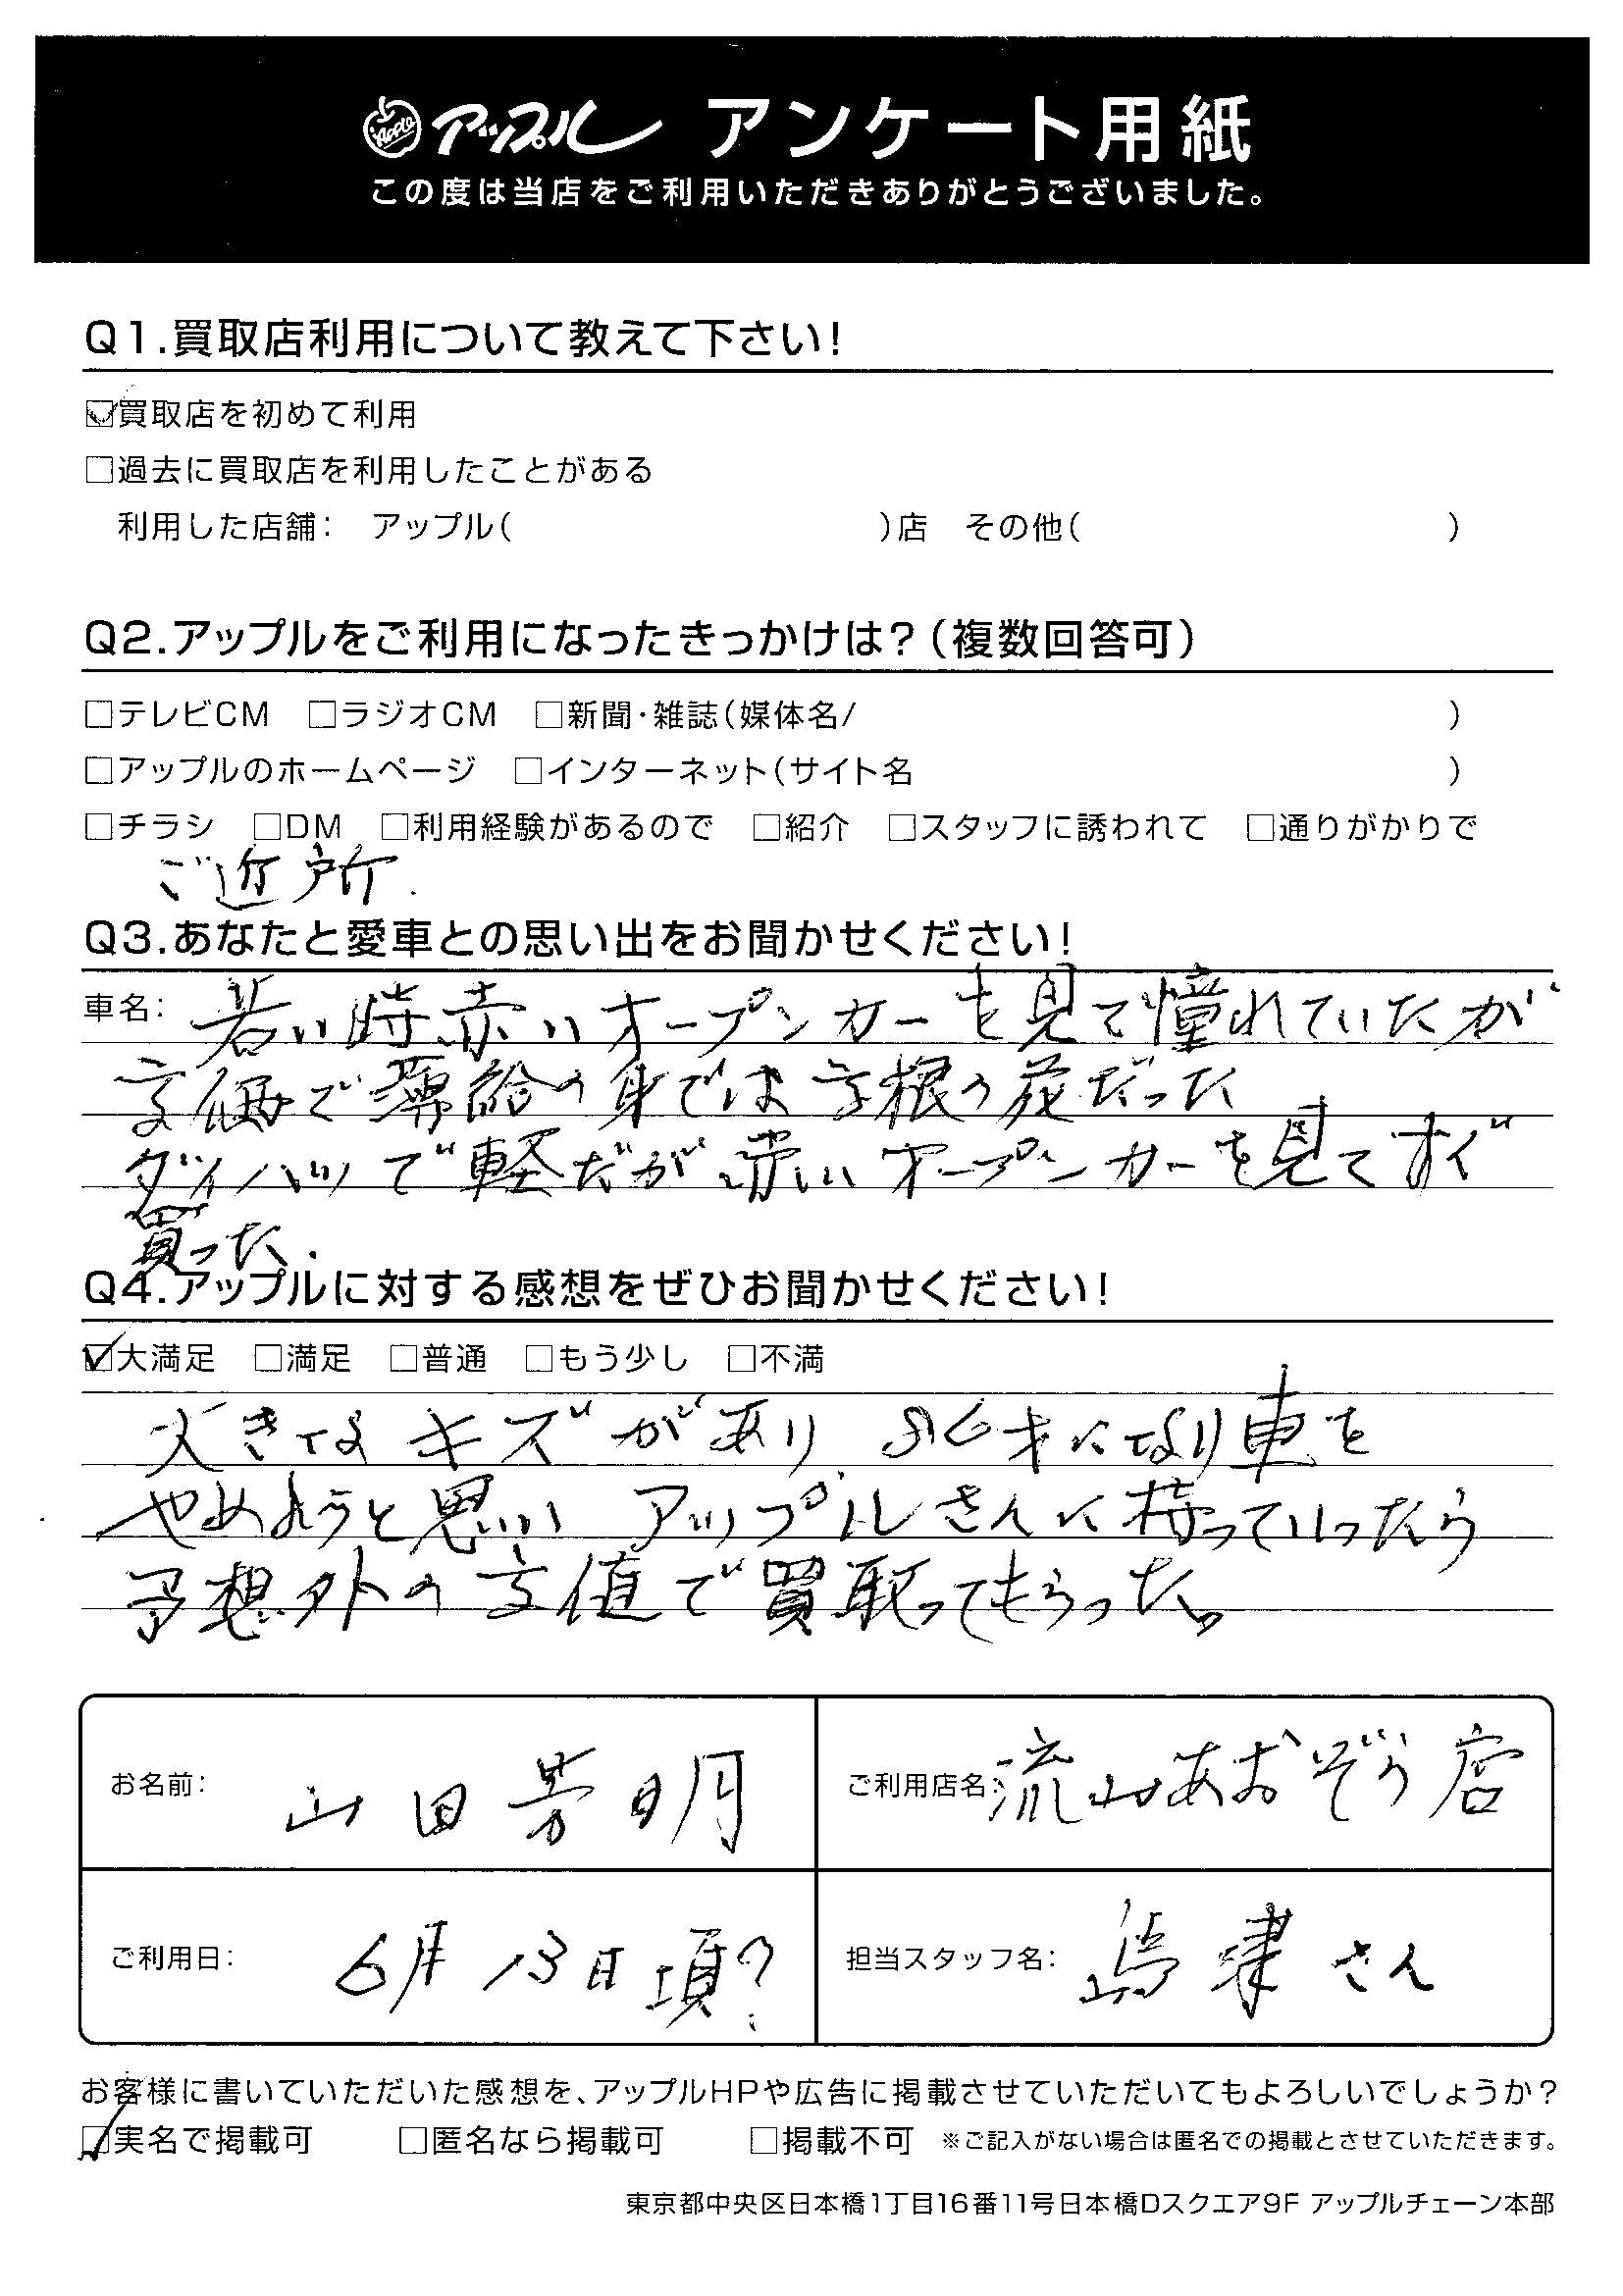 アップル アンケート用紙
この度は当店をご利用いただきありがとうございました。
Q1.買取店利用について教えて下さい!
☑買取店を初めて利用
□過去に買取店を利用したことがある
利用した店舗: アップル( )店 その他( )
Q2.アップルをご利用になったきっかけは?(複数回答可)
□テレビCM □ラジオCM □新聞・雑誌(媒体名/ )
□アップルのホームページ □インターネット(サイト名 )
□チラシ □DM □利用経験があるので □紹介 □スタッフに誘われて □通りがかりで
ご近所.
Q3.あなたと愛車との思い出をお聞かせください!
車名: 若い時赤いオープンカーを見て憧れていたが
高価で薄給の身では高根の花だった
ダイハツで軽だが赤いオープンカーを見てすぐ
買った.
Q4.アップルに対する感想をぜひお聞かせください!
☑大満足 □満足 □普通 □もう少し □不満
大きなキズがあり 86才になり車を
やめようと思い アップルさんに持っていったら
予想外の高値で買取ってもらった。
お名前: 山田芳明
ご利用店名: 流山あおぞら店
ご利用日: 6月13日頃?
担当スタッフ名: 島津さん
お客様に書いていただいた感想を、アップルHPや広告に掲載させていただいてもよろしいでしょうか?
☑実名で掲載可 □匿名なら掲載可 □掲載不可 ※ご記入がない場合は匿名での掲載とさせていただきます。
東京都中央区日本橋1丁目16番11号日本橋Dスクエア9F アップルチェーン本部